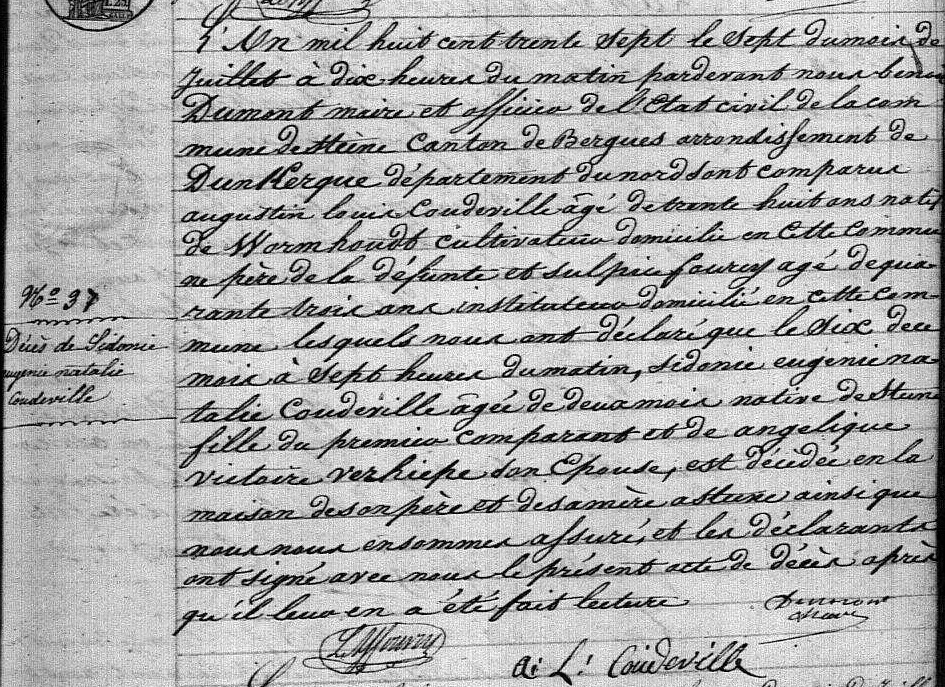 L'An mil huit cent trente sept le sept du mois de
Juillet à dix heures du matin pardevant nous benoi
Dumont maire et officier de l'Etat civil de la com
mune de Steene Canton de Bergues arrondissement de
DunKerque département du nord sont comparus
augustin louis Coudeville âgé de trente huit ans natif
de Wormhoudt cultivateur domicilié en cette commu
ne père de la défunte et sulpice fourcy agé de qua
rante trois ans instituteur domicilié en cette com
mune lesquels nous ont déclaré que le Six de ce
mois à Sept heures du matin, sidonie eugenie na
talie Coudeville âgée de deux mois native de Steene
fille du premier comparant et de angelique
victoire verhiepe son Epouse, est décédée en la
maison de son père et de sa mère a Steene ainsi que
nous nous en sommes assuré, et les déclarants
ont signé avec nous le présent acte de décès après
qu'il leur en a été fait lecture
Dumont
maire
A: L: Coudeville
No 37
Décès de Sidonie
eugenie natalie
Coudeville